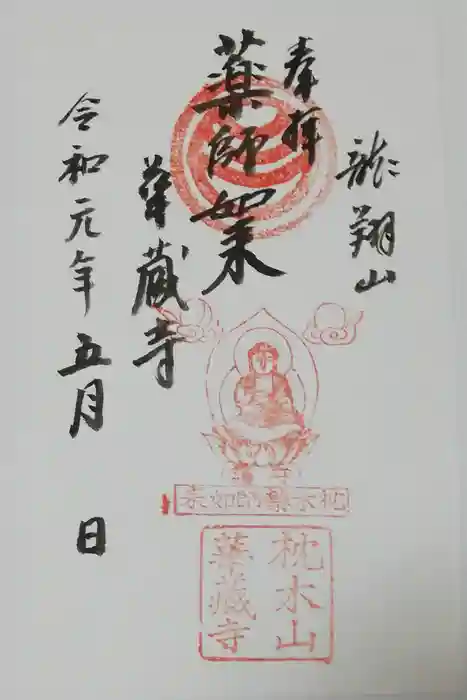 龍翔山
奉拝
薬師如来
華蔵寺
令和元年五月 日
枕木薬師如来
枕木山
華藏寺